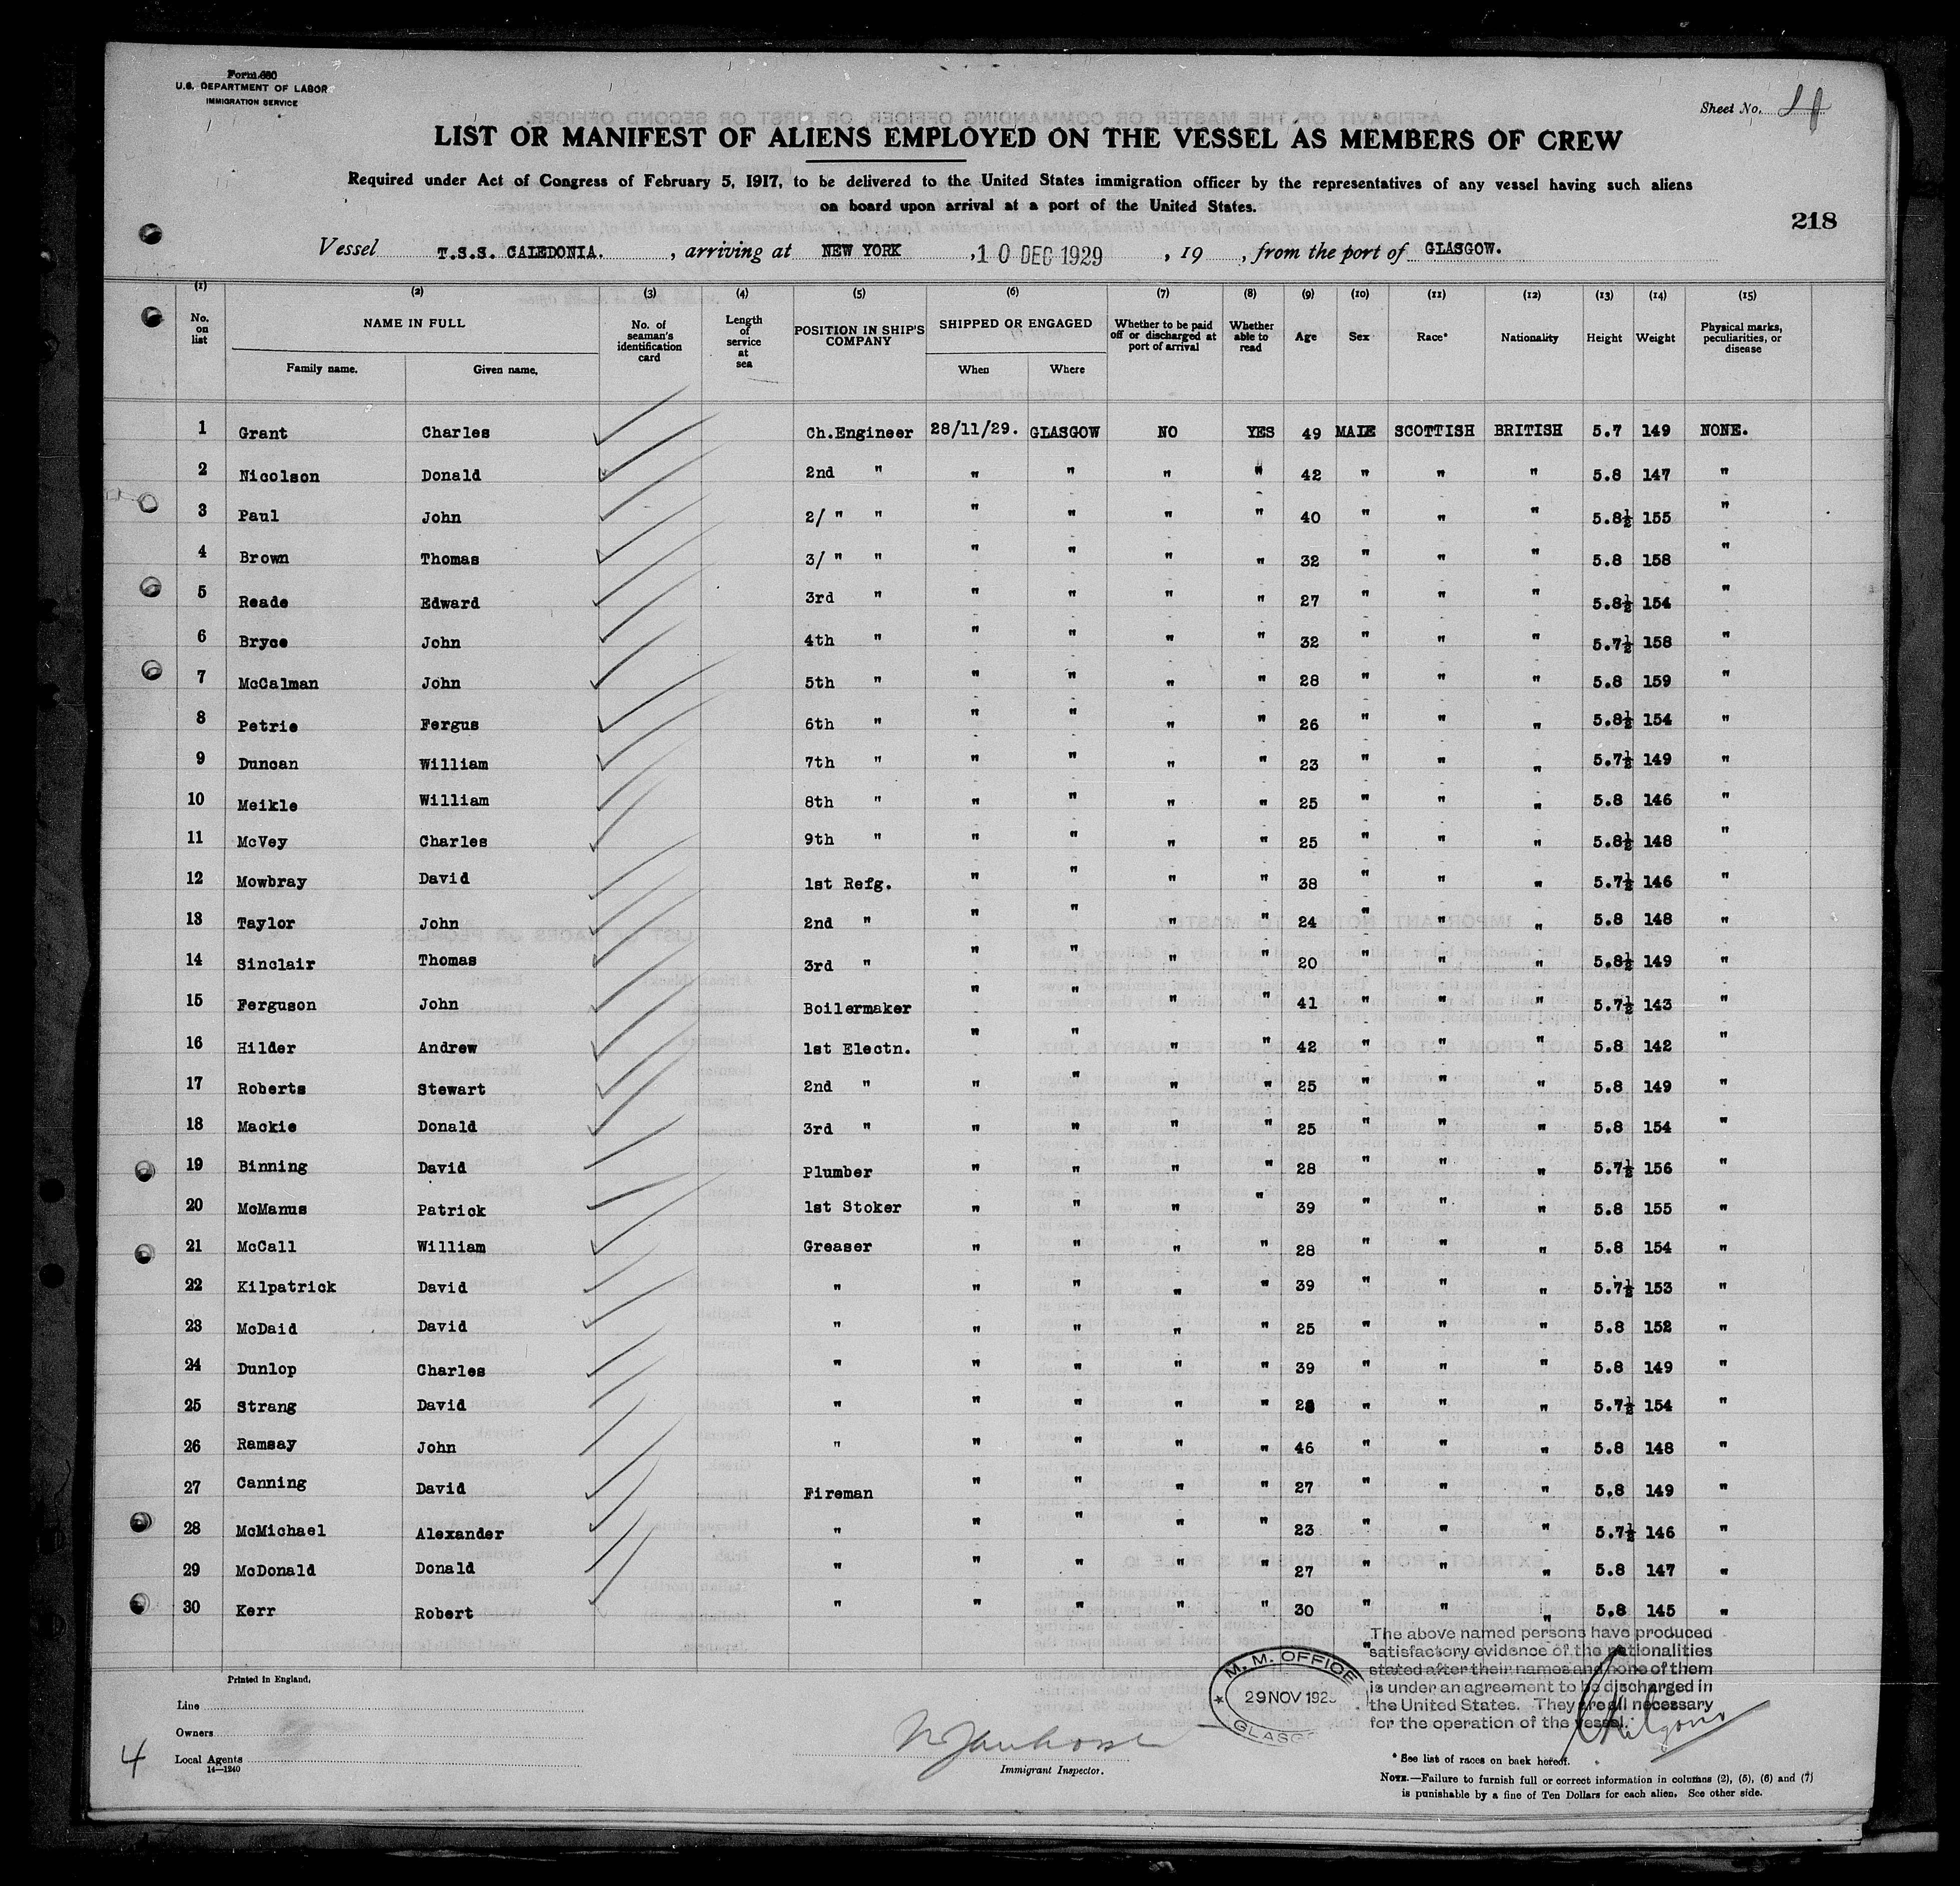 Form 680
U.S. DEPARTMENT OF LABOR
IMMIGRATION SERVICE
Sheet No.
LIST OR MANIFEST OF ALIENS EMPLOYED ON THE VESSEL AS MEMBERS OF CREW
Required under Act of Congress of February 5, 1917, to be delivered to the United States immigration officer by the representatives of any vessel having such aliens
on board upon arrival at a port of the United States.
218
Vessel T.S.S. CALEDONIA. , arriving at NEW YORK , 10 DEC 1929 , 19 , from the port of GLASGOW.
(1) (2) (3) (4) (5) (6) (7) (8) (9) (10) (11) (12) (13) (14) (15)
No. on list NAME IN FULL Family name. Given name. No. of seaman's identification card Length of service at sea POSITION IN SHIP'S COMPANY SHIPPED OR ENGAGED When Where Whether to be paid off or discharged at port of arrival Whether able to read Age Sex Race* Nationality Height Weight Physical marks, peculiarities, or disease
1 Grant Charles Ch.Engineer 28/11/29. GLASGOW NO YES 49 MALE SCOTTISH BRITISH 5.7 149 NONE.
2 Nicolson Donald 2nd " " " " " 42 " " " 5.8 147 "
3 Paul John 2/ " " " " " " 40 " " " 5.8½ 155 "
4 Brown Thomas 3/ " " " " " " 32 " " " 5.8 158 "
5 Reade Edward 3rd " " " " " 27 " " " 5.8½ 154 "
6 Bryce John 4th " " " " " 32 " " " 5.7½ 158 "
7 McCalman John 5th " " " " " 28 " " " 5.8 159 "
8 Petrie Fergus 6th " " " " " 26 " " " 5.8½ 154 "
9 Duncan William 7th " " " " " 23 " " " 5.7½ 149 "
10 Meikle William 8th " " " " " 25 " " " 5.8 146 "
11 McVey Charles 9th " " " " " 25 " " " 5.8½ 148 "
12 Mowbray David 1st Refg. " " " " 38 " " " 5.7½ 146 "
13 Taylor John 2nd " " " " " 24 " " " 5.8 148 "
14 Sinclair Thomas 3rd " " " " " 20 " " " 5.8½ 149 "
15 Ferguson John Boilermaker " " " " 41 " " " 5.7½ 143 "
16 Hilder Andrew 1st Electn. " " " " 42 " " " 5.8 142 "
17 Roberts Stewart 2nd " " " " " 25 " " " 5.8 149 "
18 Mackie Donald 3rd " " " " " 25 " " " 5.8 154 "
19 Binning David Plumber " " " " 28 " " " 5.7½ 156 "
20 McManus Patrick 1st Stoker " " " " 39 " " " 5.8 155 "
21 McCall William Greaser " " " " 28 " " " 5.8 154 "
22 Kilpatrick David " " " " " 39 " " " 5.7½ 153 "
23 McDaid David " " " " " 25 " " " 5.8 152 "
24 Dunlop Charles " " " " " 39 " " " 5.8 149 "
25 Strang David " " " " " " " " 5.7½ 154 "
26 Ramsay John " " " " " 46 " " " 5.8 148 "
27 Canning David Fireman " " " " 27 " " " 5.8 149 "
28 McMichael Alexander " " " " " 23 " " " 5.7½ 146 "
29 McDonald Donald " " " " " 27 " " " 5.8 147 "
30 Kerr Robert " " " " " 30 " " " 5.8 145 "
"The above named persons have produced
satisfactory evidence of the nationalities
stated after their names and none of them
is under an agreement to be discharged in
the United States. They are all necessary
for the operation of the vessel.
M. M. OFFICE
29 NOV 1929
GLASG
Printed in England.
Line
Owners
Local Agents
14—1240
4
Immigrant Inspector.
* See list of races on back hereof.
NOTE.—Failure to furnish full or correct information in columns (2), (5), (6) and (7)
is punishable by a fine of Ten Dollars for each alien. See other side.